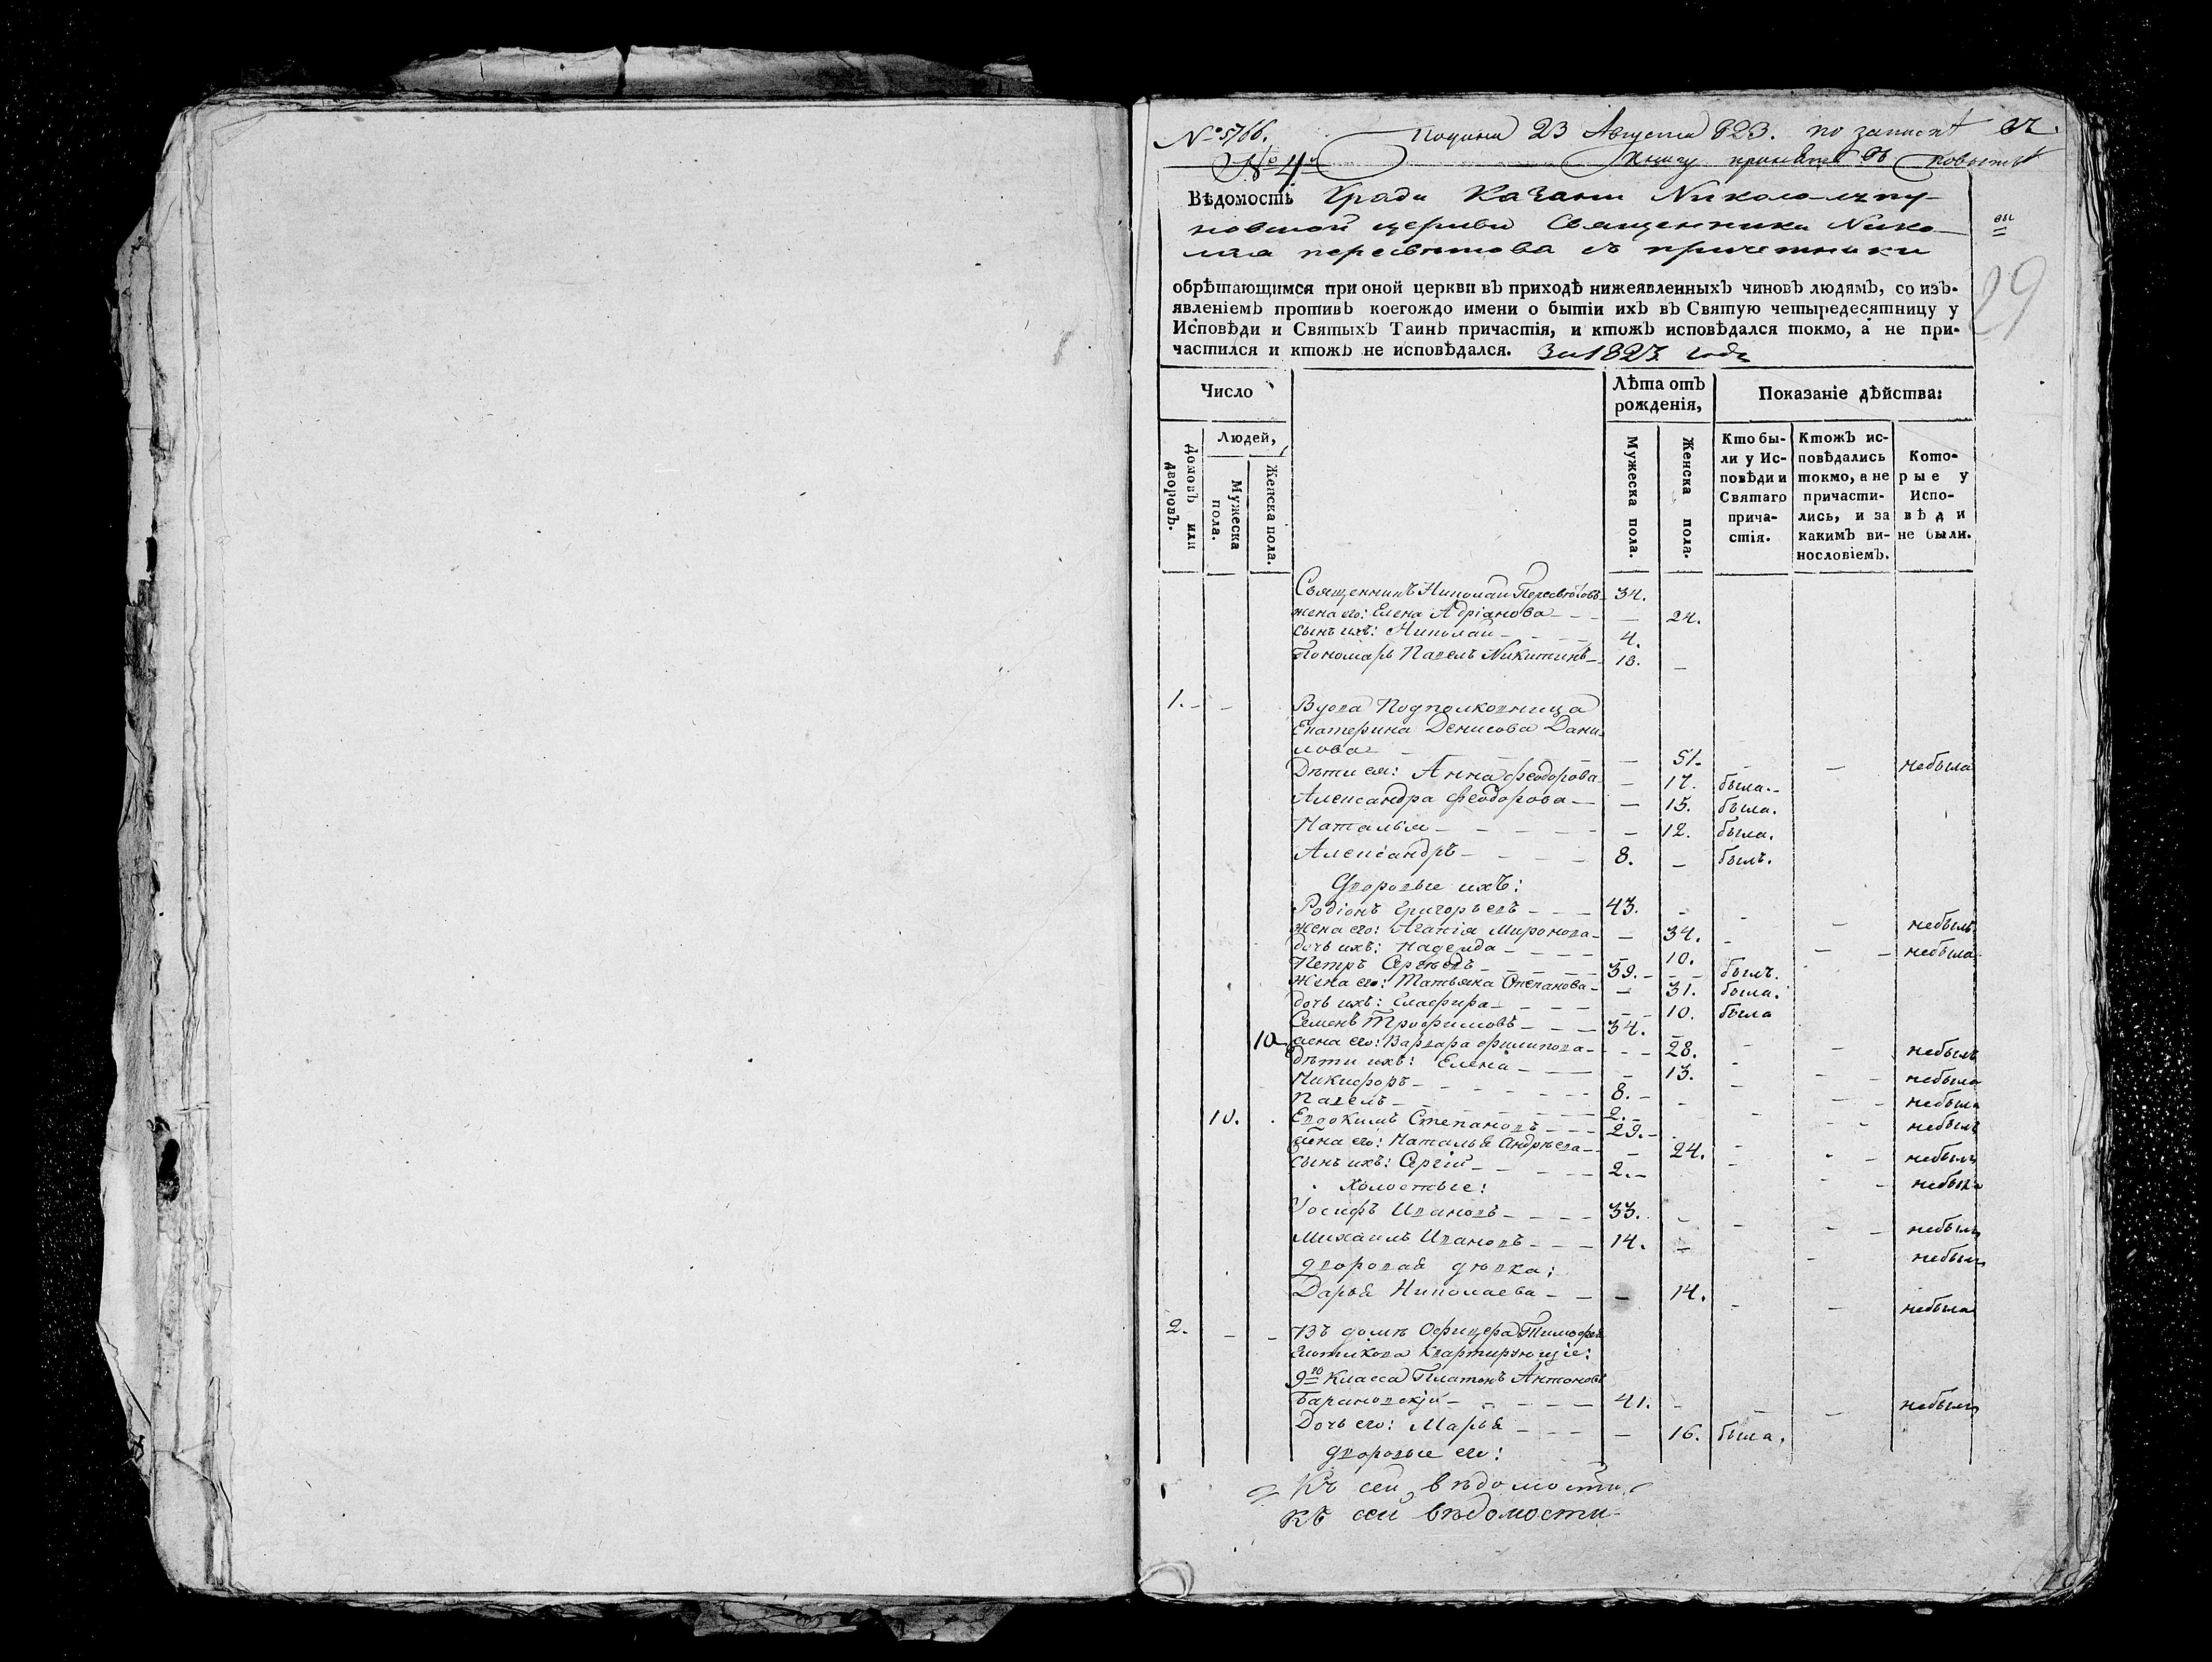 № 5766. Подана 23 Августа 823. по записке въ
№ 4й книгу принять въ повытьѣ
Вѣдомость Града Казани Николо-ляпу-
новской церкви Священника Нико-
лая пересвѣтова съ причетники
29
обрѣтающимся при оной церкви въ приходѣ нижеявленныхъ чиновъ людямъ, со изъ-
явленіемъ противъ коегождо имени о бытіи ихъ въ Святую четыредесятницу у
Исповѣди и Святыхъ Таинъ причастія, и ктожъ исповѣдался токмо, а не при-
частился и ктожъ не исповѣдался. За 1823 годъ
Число
Лѣта отъ рожденія,
Показаніе дѣйства:
Домовъ или дворовъ.
Людей,
Мужеска пола.
Женска пола.
Мужеска пола.
Женска пола.
Кто были у Исповѣди и Святаго причастія.
Ктожъ исповѣдались токмо, а не причастились, и за какимъ винословіемъ.
Которые у Исповѣди не были.
Священникъ Николай Пересвѣтовъ 34.
жена его: Елена Адріанова - - - — 24.
сынъ ихъ: Николай - - - - 4.
Пономарь Павелъ Никитинъ - 18. —
1. - - Вдова Подполковница
Екатерина Денисова Дани-
лова - - - — 51. — — небыла
Дѣти ея: Анна Феодорова — 17. была.
Александра Феодорова — — 15. была.
Наталья - - - - - — 12. была.
Александръ - - - - 8. — былъ.
Дворовые ихъ:
Родіонъ Григорьевъ - - - 43. - - - небылъ
жена его: Аганія Миронова - — 34. - — - небыла
дочь ихъ: Надежда - - - - — 10.
Петръ Сергѣевъ - - - - - 39. - - - былъ.
Жена его: Татьяна Степанова - — 31. была.
дочь ихъ: Глафира - - - - - 10. была
Семенъ Трофимовъ - - - 34. — - — небылъ
10 жена его: Варвара Филипова - - - 28. - небыла
дѣти ихъ: Елена - - - — 13. - - - небыла
Никифоръ - - - - - 8. - - - - небылъ
Павелъ - - - - - 2. - - - - небылъ
10. Евдокимъ Степановъ - - - 29. -
жена его: Наталья Андрѣева - - — 24. - - - небыла
сынъ ихъ: Сергій - - - - - 2. -
Холостые:
Іосифъ Ивановъ - - - - 33. - - — - небылъ
Михаилъ Ивановъ - - - 14. — - небылъ
дворовая дѣвка:
Дарья Николаева - - - — 14. - — небыла
2. - - Въ домѣ Офицера Тимофея
Квартирующіе:
9го Класса Платонъ Антоновъ
Барановскій - - - - - 41. - - — небылъ
Дочь его: Марья - - - — 16. была.
Дворовые его:
Къ сей вѣдомости
къ сей вѣдомости